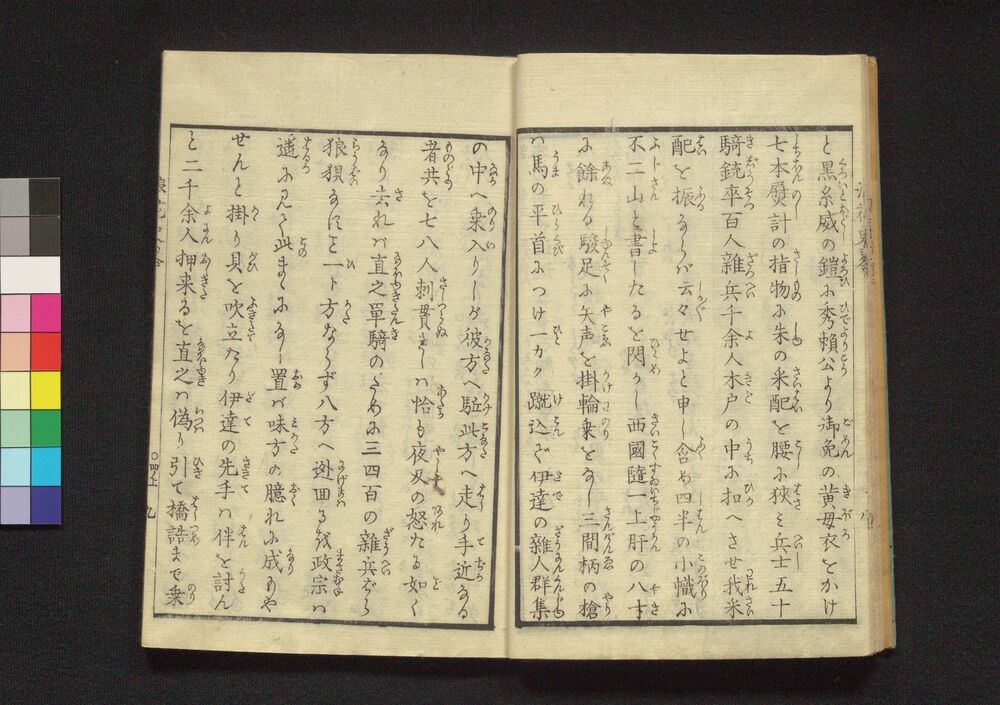 と黒糸威の鎧に秀頼公より御免の黄母衣をかけ
七本熨計の指物に朱の采配を腰に狹ミ兵士五十
騎銃卒百人雜兵千余人木戸の中に扣へさせ我采
配を振ならバ云々せよと申し含め四半の小幟に
不二山と書したるを閃かし西國隨一上肝の八寸
に餘れる駿足に矢声を掛輪乗をなし三間柄の槍
ハ馬の平首につけ一カク蹴込バ伊達の雜人群集
の中へ乗入りしが彼方へ駈此方へ走り手近なる
者共を七八人刺貫きしハ恰も夜叉の怒たる如く
なり去れバ直之單騎のために三四百の雜兵ばら
狼狽なにに一ト方ならず八方へ逃回るを政宗ハ
遥に見て此まゝになし置バ味方の臆れに成もや
せんと掛り貝を吹立たり伊達の先手ハ伴を討ん
と二千余人押来るを直之ハ偽り引て橋詰まで乗
九